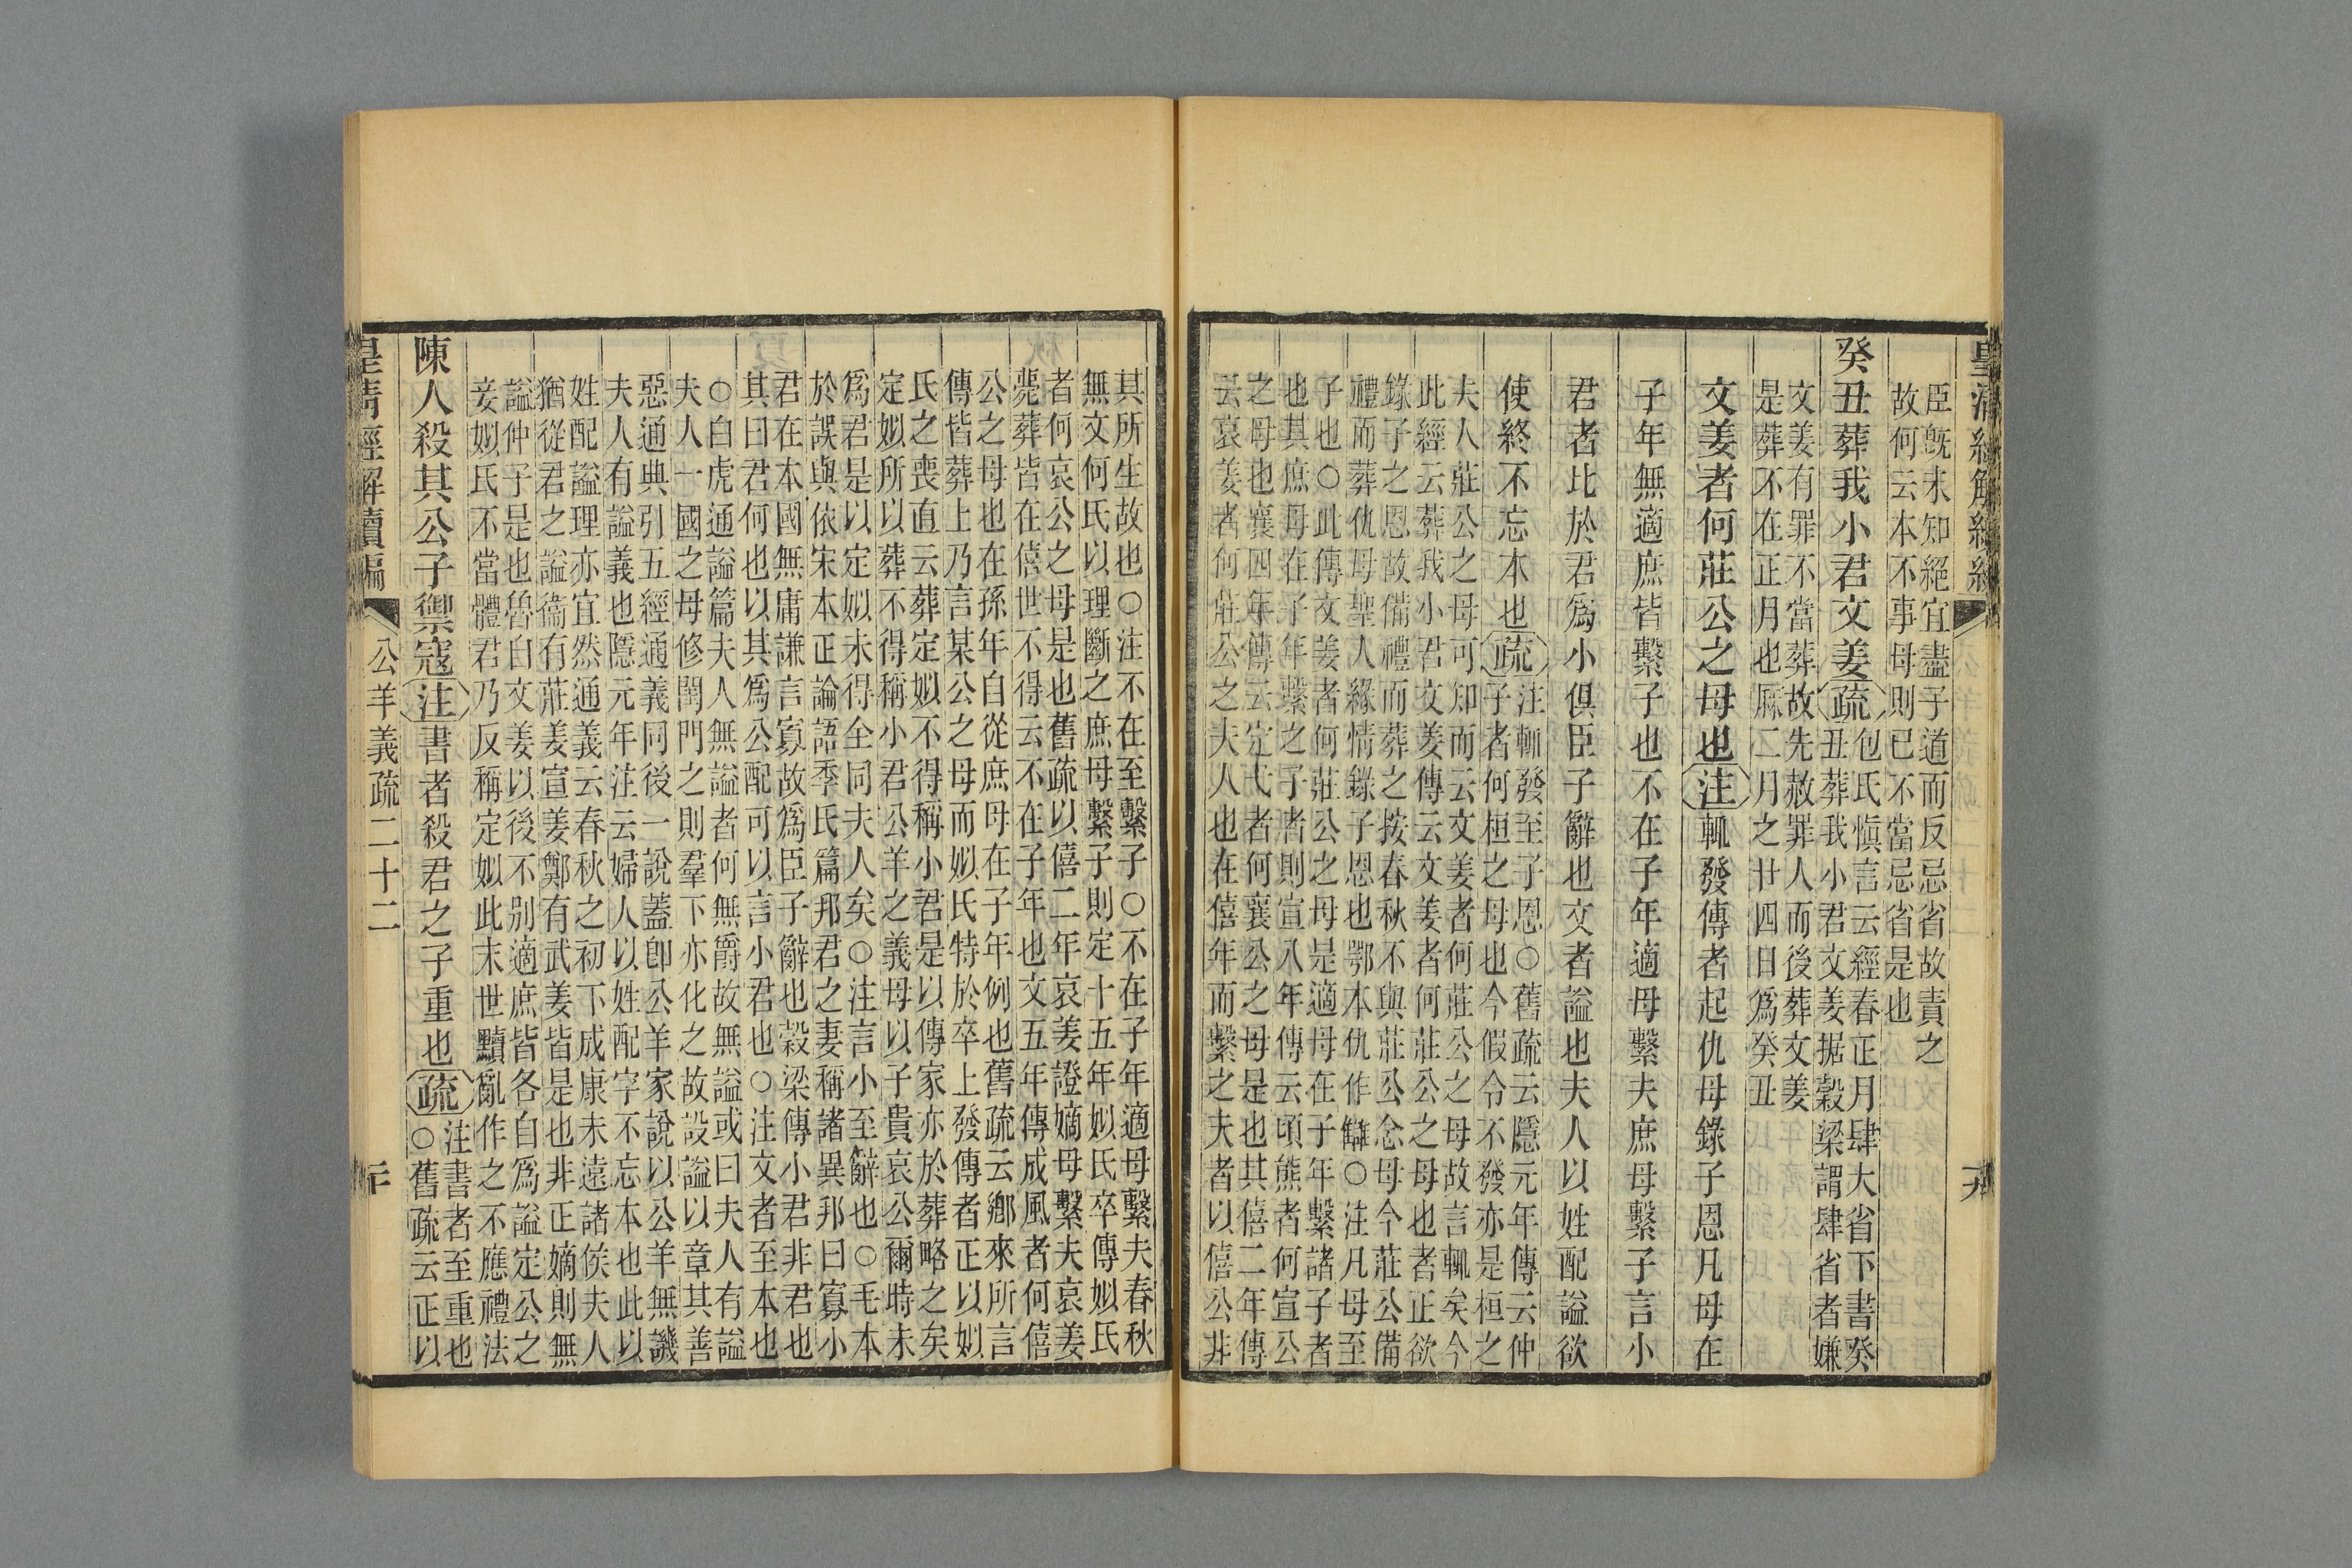 臣旣未知絕宜盡子道而反忌省故責之
故何云本不事母則已不當忌省是也
癸丑葬我小君文姜疏包氏愼言云經春正月肆大省下書癸
丑葬我小君文姜据穀梁謂肆省者嫌
文姜有罪不當葬故先赦罪人而後葬文姜
是葬不在正月也厤二月之廿四日爲癸丑
文姜者何莊公之母也注輒發傳者起仇母錄子恩凡母在
子年無適庶皆繫子也不在子年適母繫夫庶母繫子言小
君者比於君爲小俱臣子辭也文者謚也夫人以姓配謚欲
使終不忘本也疏注輒發至子恩○舊疏云隱元年傳云仲
子者何桓之母也今假令不發亦是桓之
夫人莊公之母可知而云文姜者何莊公之母故言輒矣今
此經云葬我小君文姜傳云文姜者何莊公之母也者正欲
錄子之恩故備禮而葬之按春秋不與莊公念母今莊公備
禮而葬仇母聖人緣情錄子恩也鄂本仇作讎○注凡母至
子也○此傳文姜者何莊公之母是適母在子年繫諸子者
也其庶母在子年繫之子者則宣八年傳云頃熊者何宣公
之母也襄四年傳云定弋者何襄公之母是也其僖二年傳
云哀姜者何莊公之夫人也在僖年而繫之夫者以僖公非
其所生故也○注不在至繫子○不在子年適母繫夫春秋
無文何氏以理斷之庶母繫子則定十五年姒氏卒傳姒氏
者何哀公之母是也舊疏以僖二年哀姜證嫡母繫夫哀姜
薨葬皆在僖世不得云不在子年也文五年傳成風者何僖
公之母也在孫年自從庶母在子年例也舊疏云鄉來所言
傳皆葬上乃言某公之母而姒氏特於卒上發傳者正以姒
氏之喪直云葬定姒不得稱小君是以傳家亦於葬略之矣
定姒所以葬不得稱小君公羊之義母以子貴哀公爾時未
爲君是以定姒未得全同夫人矣○注言小至辭也○毛本
於誤與依宋本正論語季氏篇邦君之妻稱諸異邦曰寡小
君在本國無庸謙言寡故爲臣子辭也穀梁傳小君非君也
其曰君何也以其爲公配可以言小君也○注文者至本也
○白虎通謚篇夫人無謚者何無爵故無謚或曰夫人有謚
夫人一國之母修閨門之則羣下亦化之故設謚以章其善
惡通典引五經通義同後一說蓋卽公羊家說以公羊無譏
夫人有謚義也隱元年注云婦人以姓配字不忘本也此以
姓配謚理亦宜然通義云春秋之初下成康未遠諸侯夫人
猶從君之謚衞有莊姜宣姜鄭有武姜皆是也非正嫡則無
謚仲子是也魯自文姜以後不别適庶皆各自爲謚定公之
妾姒氏不當體君乃反稱定姒此末世黷亂作之不應禮法
陳人殺其公子禦寇注書者殺君之子重也疏注書者至重也
○舊疏云正以
皇清經解續編
公羊義疏二十二